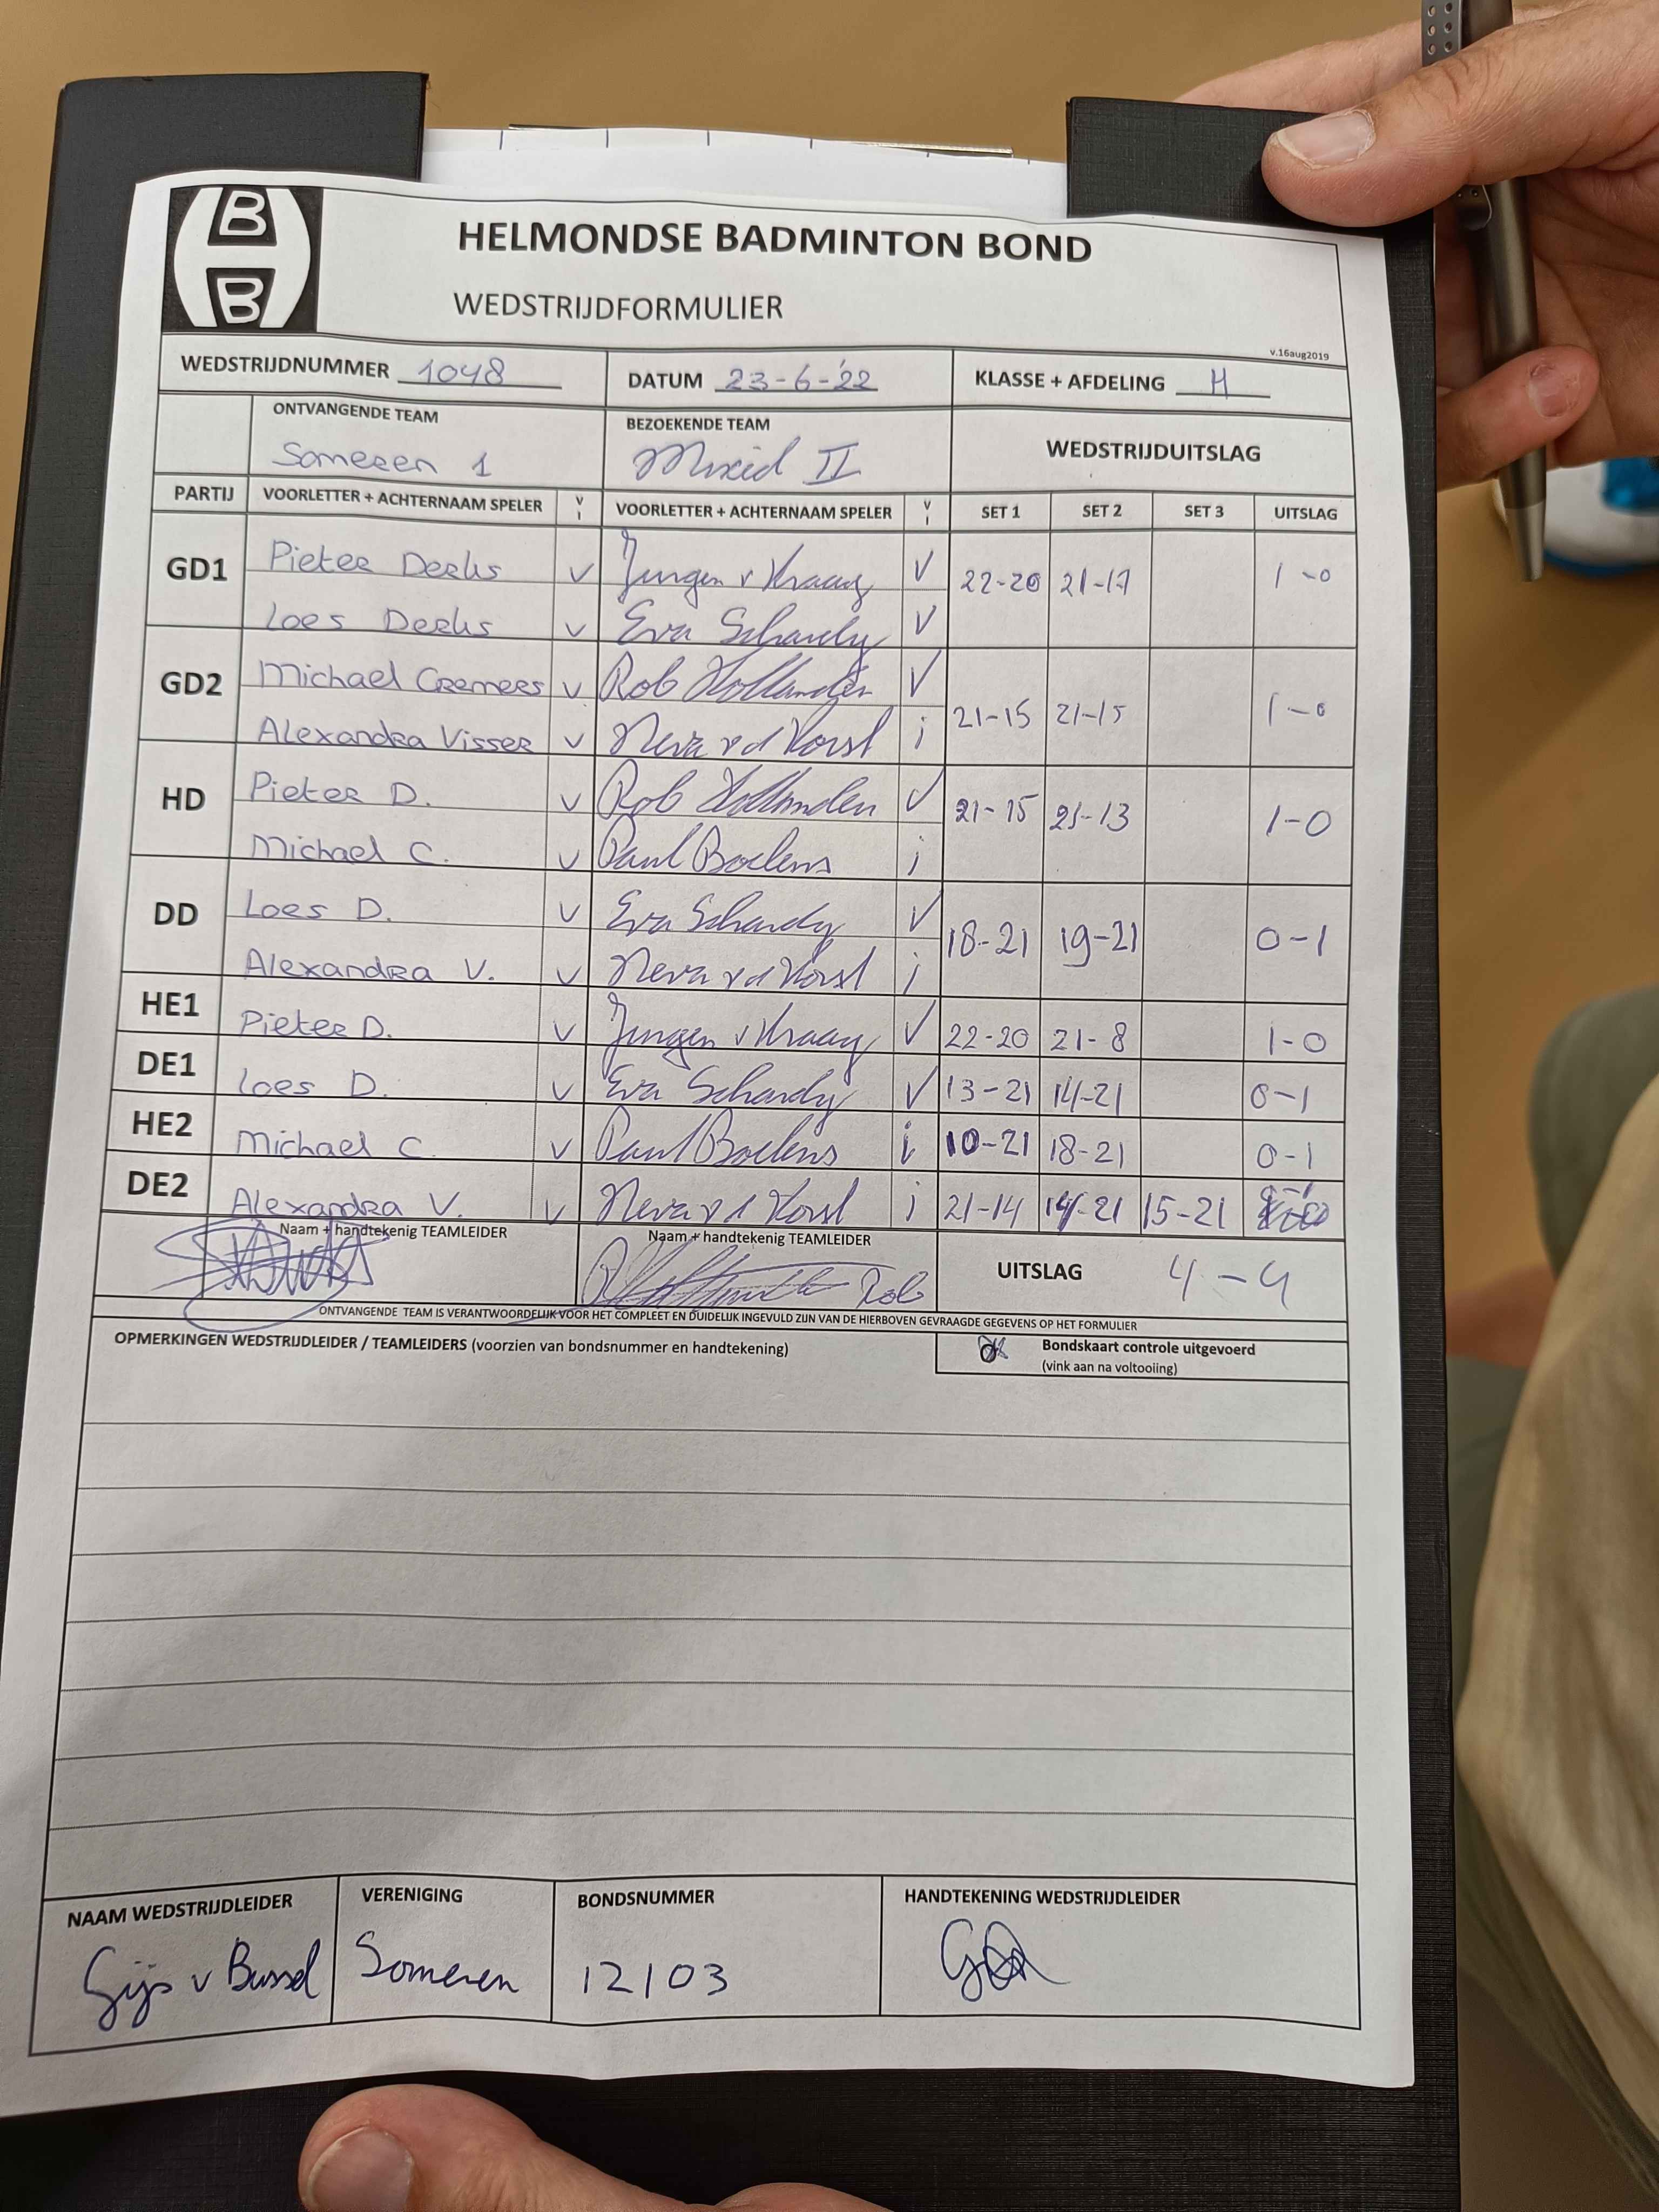 B
B
HELMONDSE BADMINTON BOND
WEDSTRIJDFORMULIER
v.16aug2019
WEDSTRIJDNUMMER 1048 DATUM 23-6-'22 KLASSE + AFDELING H
ONTVANGENDE TEAM BEZOEKENDE TEAM WEDSTRIJDUITSLAG
Someren 1 Mixed II
PARTIJ VOORLETTER + ACHTERNAAM SPELER V I VOORLETTER + ACHTERNAAM SPELER V I SET 1 SET 2 SET 3 UITSLAG
GD1 Pieter Derks v Jurgen v Kraaij V 22-20 21-17 1-0
Loes Derks v Eva Schardy V
GD2 Michael Cremers v Rob Hollander V 21-15 21-15 1-0
Alexandra Visser v Neva v d Horst i
HD Pieter D. v Rob Hollander V 21-15 21-13 1-0
Michael C. v Paul Boelens i
DD Loes D. v Eva Schardy V 18-21 19-21 0-1
Alexandra V. v Neva v d Horst i
HE1 Pieter D. v Jurgen v Kraaij V 22-20 21-8 1-0
DE1 Loes D. v Eva Schardy V 13-21 14-21 0-1
HE2 Michael C. v Paul Boelens i 10-21 18-21 0-1
DE2 Alexandra V. v Neva v d Horst i 21-14 14-21 15-21
Naam + handtekenig TEAMLEIDER Naam + handtekenig TEAMLEIDER UITSLAG 4-4
Rob
ONTVANGENDE TEAM IS VERANTWOORDELIJK VOOR HET COMPLEET EN DUIDELIJK INGEVULD ZIJN VAN DE HIERBOVEN GEVRAAGDE GEGEVENS OP HET FORMULIER
OPMERKINGEN WEDSTRIJDLEIDER / TEAMLEIDERS (voorzien van bondsnummer en handtekening) Bondskaart controle uitgevoerd
(vink aan na voltooiing)
NAAM WEDSTRIJDLEIDER VERENIGING BONDSNUMMER HANDTEKENING WEDSTRIJDLEIDER
Gijs v Bussel Someren 12103